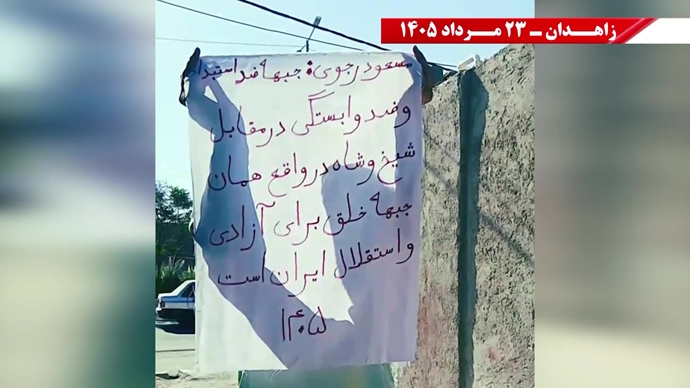 زاهدان - ۲۳ مرداد ۱۴۰۵
مسعود رجوی: جبهه ضد استبداد
و ضد وابستگی در مقابل
شیخ و شاه در واقع همان
جبهه خلق برای آزادی
و استقلال ایران است
۱۴۰۵